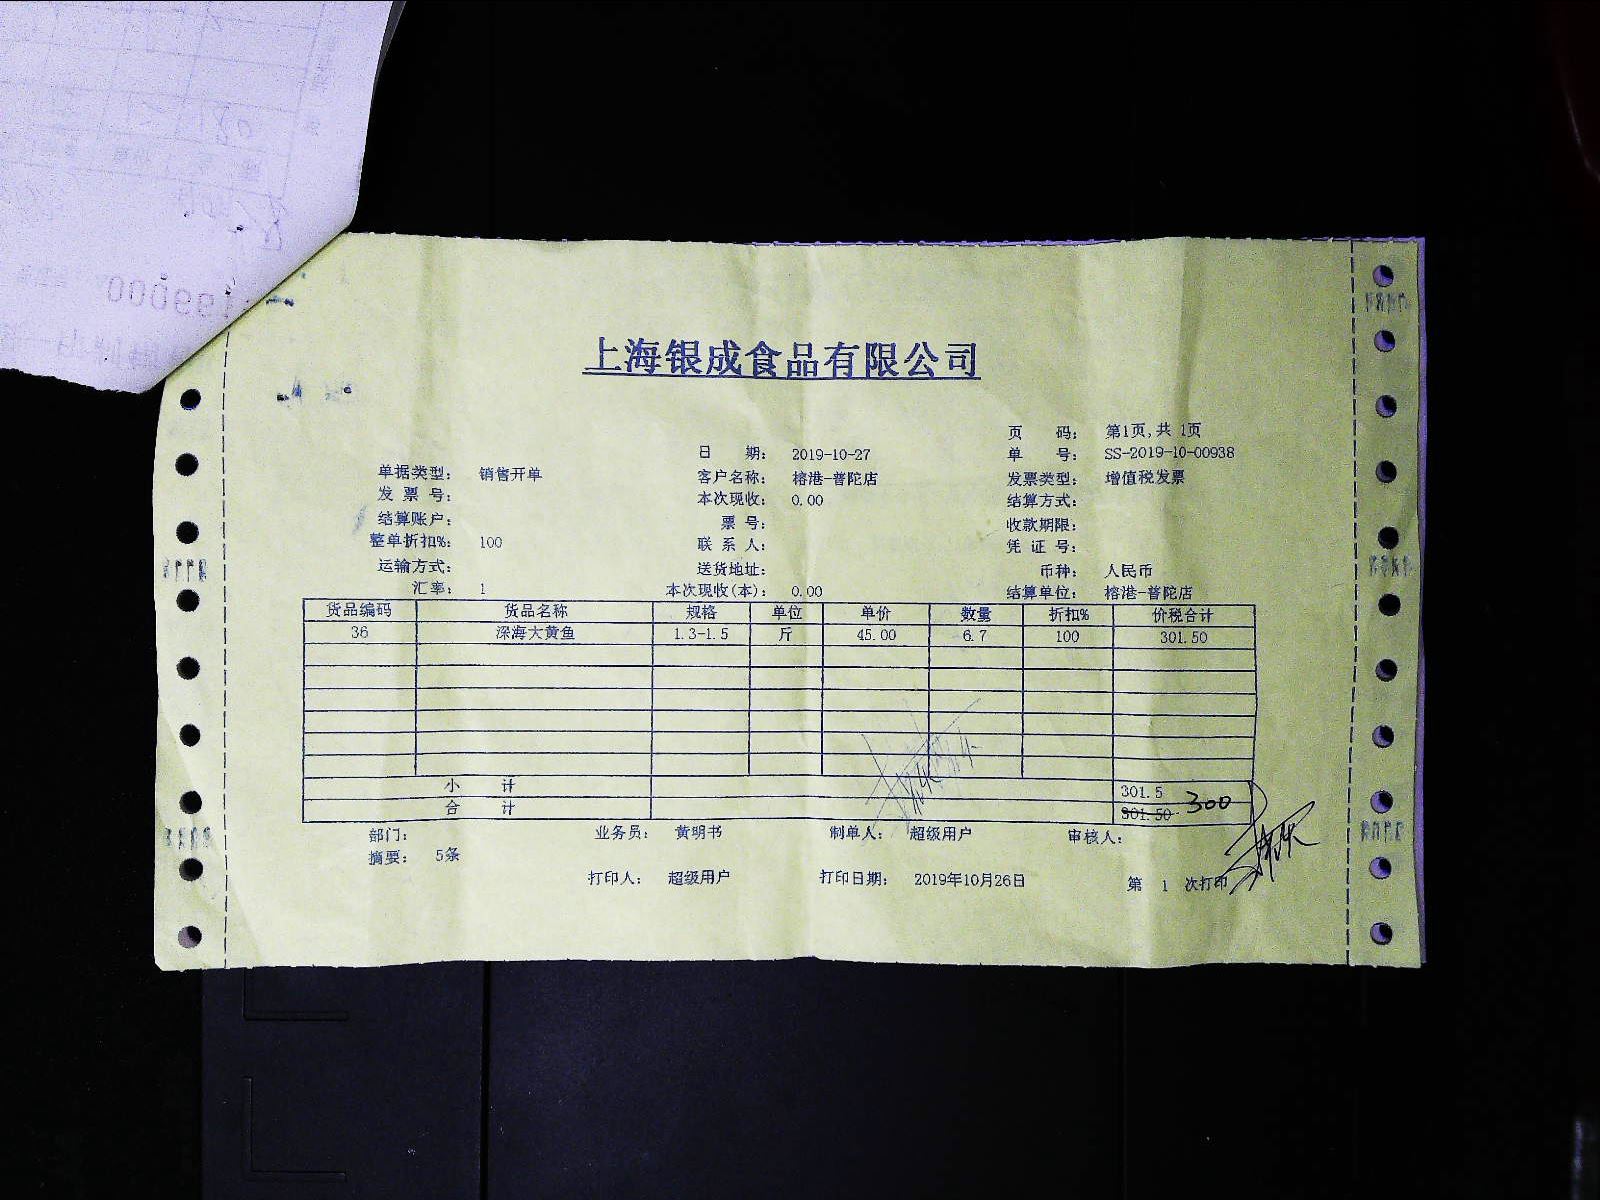 上海银成食品有限公司
页 码: 第1页,共 1页
日 期: 2019-10-27 单 号: SS-2019-10-00938
单据类型: 销售开单 客户名称: 榕港-普陀店 发票类型: 增值税发票
发 票 号: 本次现收: 0.00 结算方式:
结算账户: 票 号: 收款期限:
整单折扣%: 100 联 系 人: 凭 证 号:
运输方式: 送货地址: 币种: 人民币
汇率: 1 本次现收(本): 0.00 结算单位: 榕港-普陀店
货品编码 货品名称 规格 单位 单价 数量 折扣% 价税合计
36 深海大黄鱼 1.3-1.5 斤 45.00 6.7 100 301.50
小 计 301.5
合 计 301.50 300
部门: 业务员: 黄明书 制单人: 超级用户 审核人:
摘要: 5条
打印人: 超级用户 打印日期: 2019年10月26日 第 1 次打印